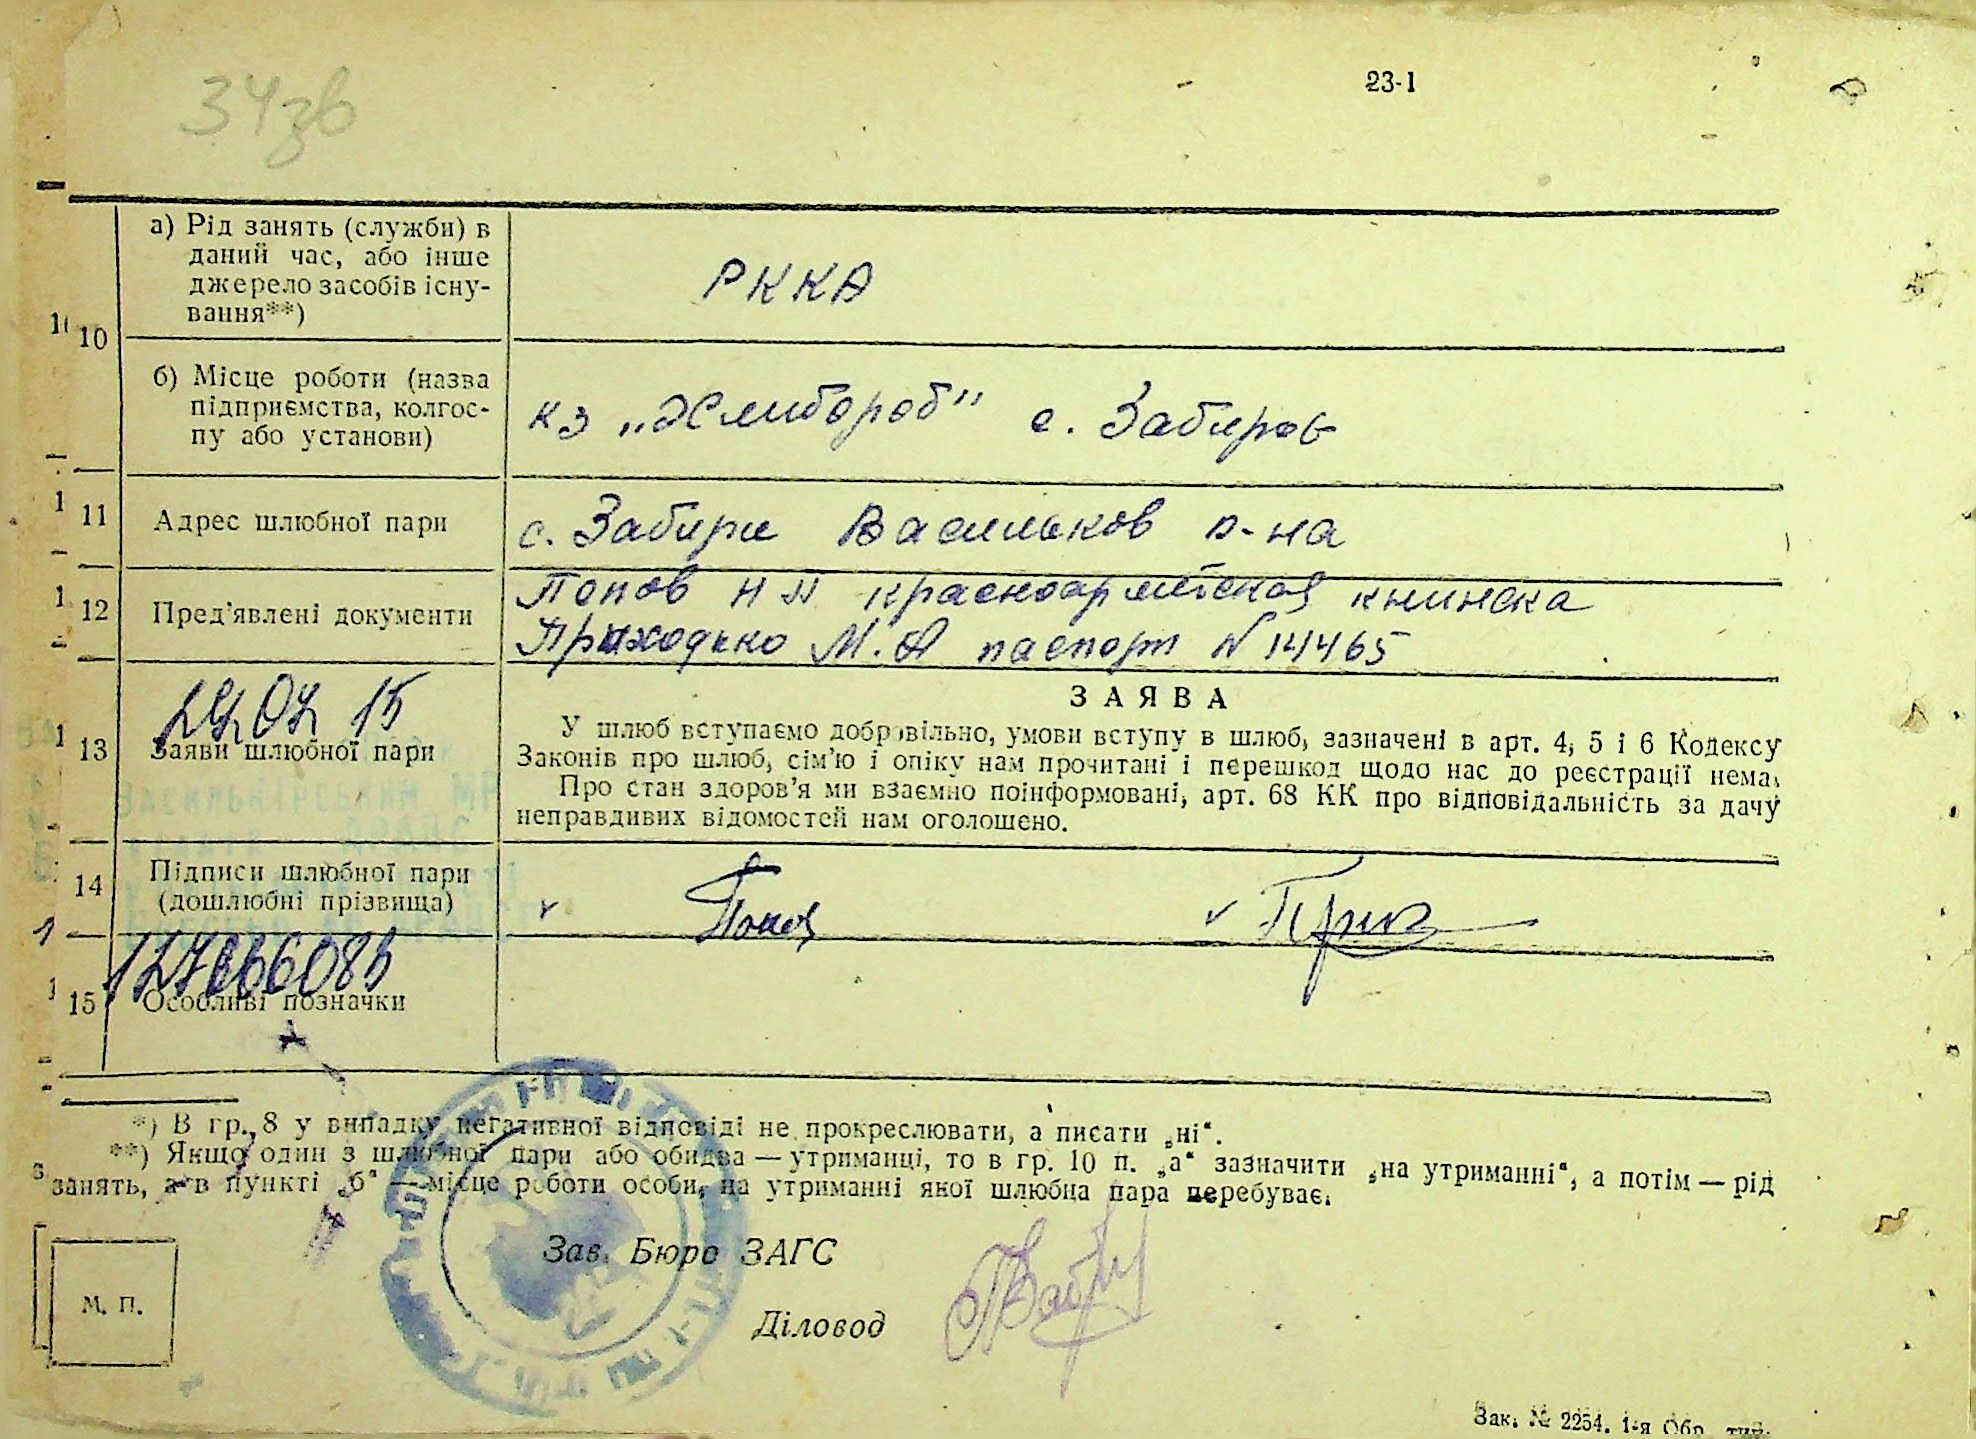 34зв
23-1
10
а) Рід занять (служби) в
даний час, або інше
джерело засобів існу-
вання**)
РККА
б) Місце роботи (назва
підприємства, колгос-
пу або установи)
кз „Хлибороб" с. Забиров
11 Адрес шлюбної пари
с. Забири Васильков р-на
12 Пред'явлені документи
Попов Н П красноармейская книжка
Приходько М.А паспорт N 14465
13 Заяви шлюбної пари
ЗАЯВА
У шлюб вступаємо добровільно, умови вступу в шлюб, зазначені в арт. 4, 5 і 6 Кодексу
Законів про шлюб, сім'ю і опіку нам прочитані і перешкод щодо нас до реєстрації нема.
Про стан здоров'я ми взаємно поінформовані, арт. 68 КК про відповідальність за дачу
неправдивих відомостей нам оголошено.
14 Підписи шлюбної пари
(дошлюбні прізвища)
Попов
15 Особливі позначки
*) В гр. 8 у випадку негативної відповіді не прокреслювати, а писати „ні“.
**) Якщо один з шлюбної пари або обидва — утриманці, то в гр. 10 п. „а“ зазначити „на утриманні“, а потім — рід
занять, а в пункті „б“ — місце роботи особи, на утриманні якої шлюбна пара перебуває.
Зав. Бюро ЗАГС
Діловод
М. П.
Зак. № 2254. 1-я Обр. тип.